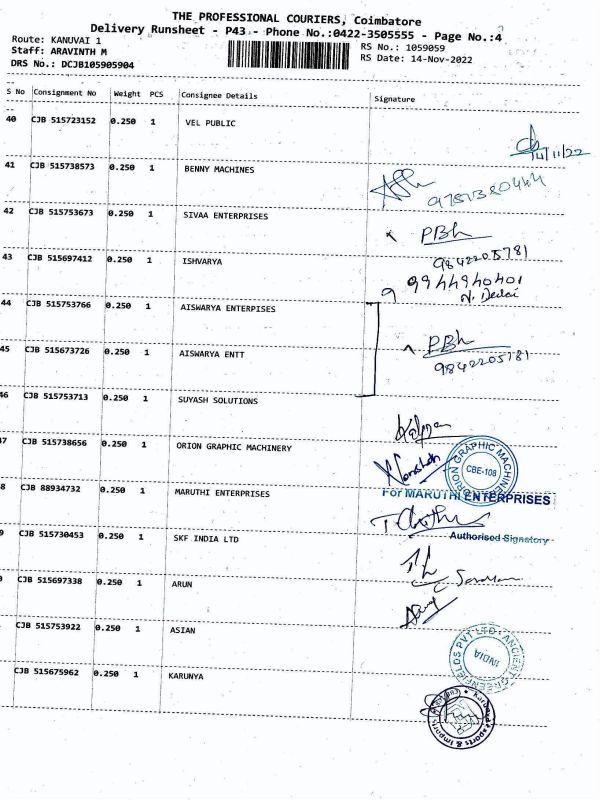 THE PROFESSIONAL COURIERS, Coimbatore
Delivery Runsheet - P43 - Phone No.:0422-3505555 - Page No.:4
Route: KANUVAI 1
Staff: ARAVINTH M
DRS No.: DCJB105905904
RS No.: 1059059
RS Date: 14-Nov-2022
S No Consignment No Weight PCS Consignee Details Signature
40 CJB 515723152 0.250 1 VEL PUBLIC
14/11/22
41 CJB 515738573 0.250 1 BENNY MACHINES
42 CJB 515753673 0.250 1 SIVAA ENTERPRISES
PBh
9842205781
43 CJB 515697412 0.250 1 ISHVARYA
9944940401
44 CJB 515753766 0.250 1 AISWARYA ENTERPISES
PBh
9842205781
45 CJB 515673726 0.250 1 AISWARYA ENTT
46 CJB 515753713 0.250 1 SUYASH SOLUTIONS
47 CJB 515738656 0.250 1 ORION GRAPHIC MACHINERY
ORION GRAPHIC MACHINERY
CBE-108
8 CJB 88934732 0.250 1 MARUTHI ENTERPRISES
For MARUTHI ENTERPRISES
Authorised Signatory
9 CJB 515730453 0.250 1 SKF INDIA LTD
CJB 515697338 0.250 1 ARUN
CJB 515753922 0.250 1 ASIAN
ANCIENT GREENFIELDS PVT LTD
INDIA
CJB 515675962 0.250 1 KARUNYA
Exports & Imports